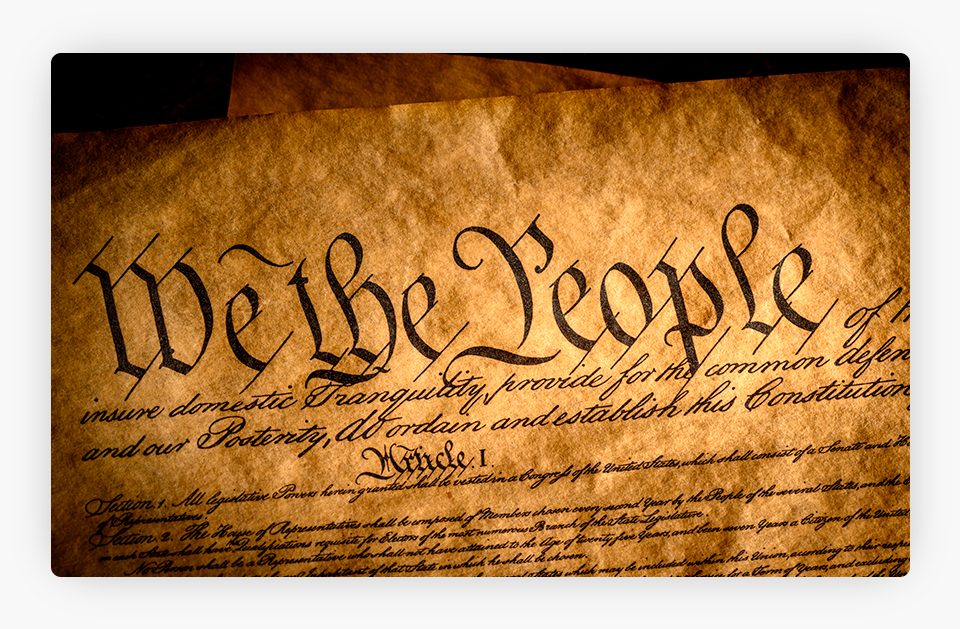 We the People of
insure domestic Tranquility, provide for the common defen
and our Posterity, do ordain and establish this Constitution
Article. I.
Section. 1. All legislative Powers herein granted shall be vested in a Congress of the United States, which shall consist of a Senate and Ho
of Representatives.
Section. 2. The House of Representatives shall be composed of Members chosen every second Year by the People of the several States, and the
in each State shall have the Qualifications requisite for Electors of the most numerous Branch of the State Legislature.
No Person shall be a Representative who shall not have attained to the Age of twenty five Years, and been seven Years a Citizen of the United
Inhabitant of that State in which he shall be chosen.
States which may be included within this Union, according to their